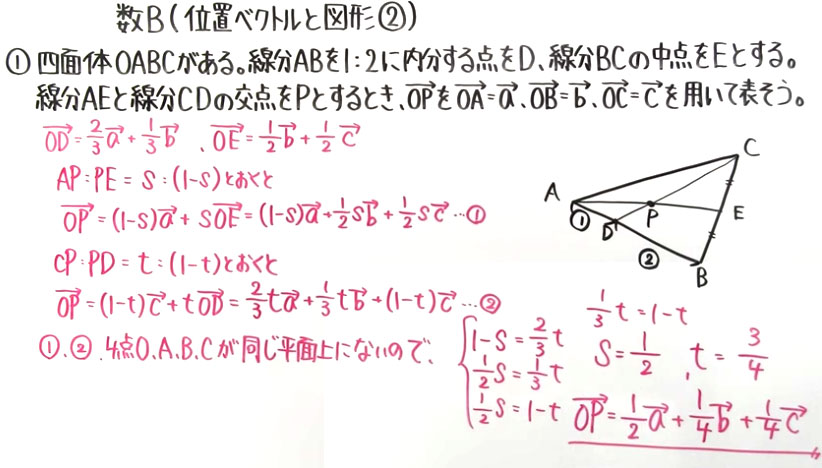 数B(位置ベクトルと図形②)
① 四面体OABCがある。線分ABを1:2に内分する点をD、線分BCの中点をEとする。
線分AEと線分CDの交点をPとするとき、$\overrightarrow{OP}$を$\overrightarrow{OA}=\vec{a}$、$\overrightarrow{OB}=\vec{b}$、$\overrightarrow{OC}=\vec{c}$を用いて表そう。
$\overrightarrow{OD}=\frac{2}{3}\vec{a}+\frac{1}{3}\vec{b}$、$\overrightarrow{OE}=\frac{1}{2}\vec{b}+\frac{1}{2}\vec{c}$
AP:PE=s:(1-s)とおくと
$\overrightarrow{OP}=(1-s)\vec{a}+s\overrightarrow{OE}=(1-s)\vec{a}+\frac{1}{2}s\vec{b}+\frac{1}{2}s\vec{c}$…①
CP:PD=t:(1-t)とおくと
$\overrightarrow{OP}=(1-t)\vec{c}+t\overrightarrow{OD}=\frac{2}{3}t\vec{a}+\frac{1}{3}t\vec{b}+(1-t)\vec{c}$…②
①、②、4点O、A、B、Cが同じ平面上にないので、
$1-s=\frac{2}{3}t$
$\frac{1}{2}s=\frac{1}{3}t$
$\frac{1}{2}s=1-t$
$\frac{1}{3}t=1-t$
$s=\frac{1}{2}$、$t=\frac{3}{4}$
$\overrightarrow{OP}=\frac{1}{2}\vec{a}+\frac{1}{4}\vec{b}+\frac{1}{4}\vec{c}$
C
A
E
①
D
P
②
B